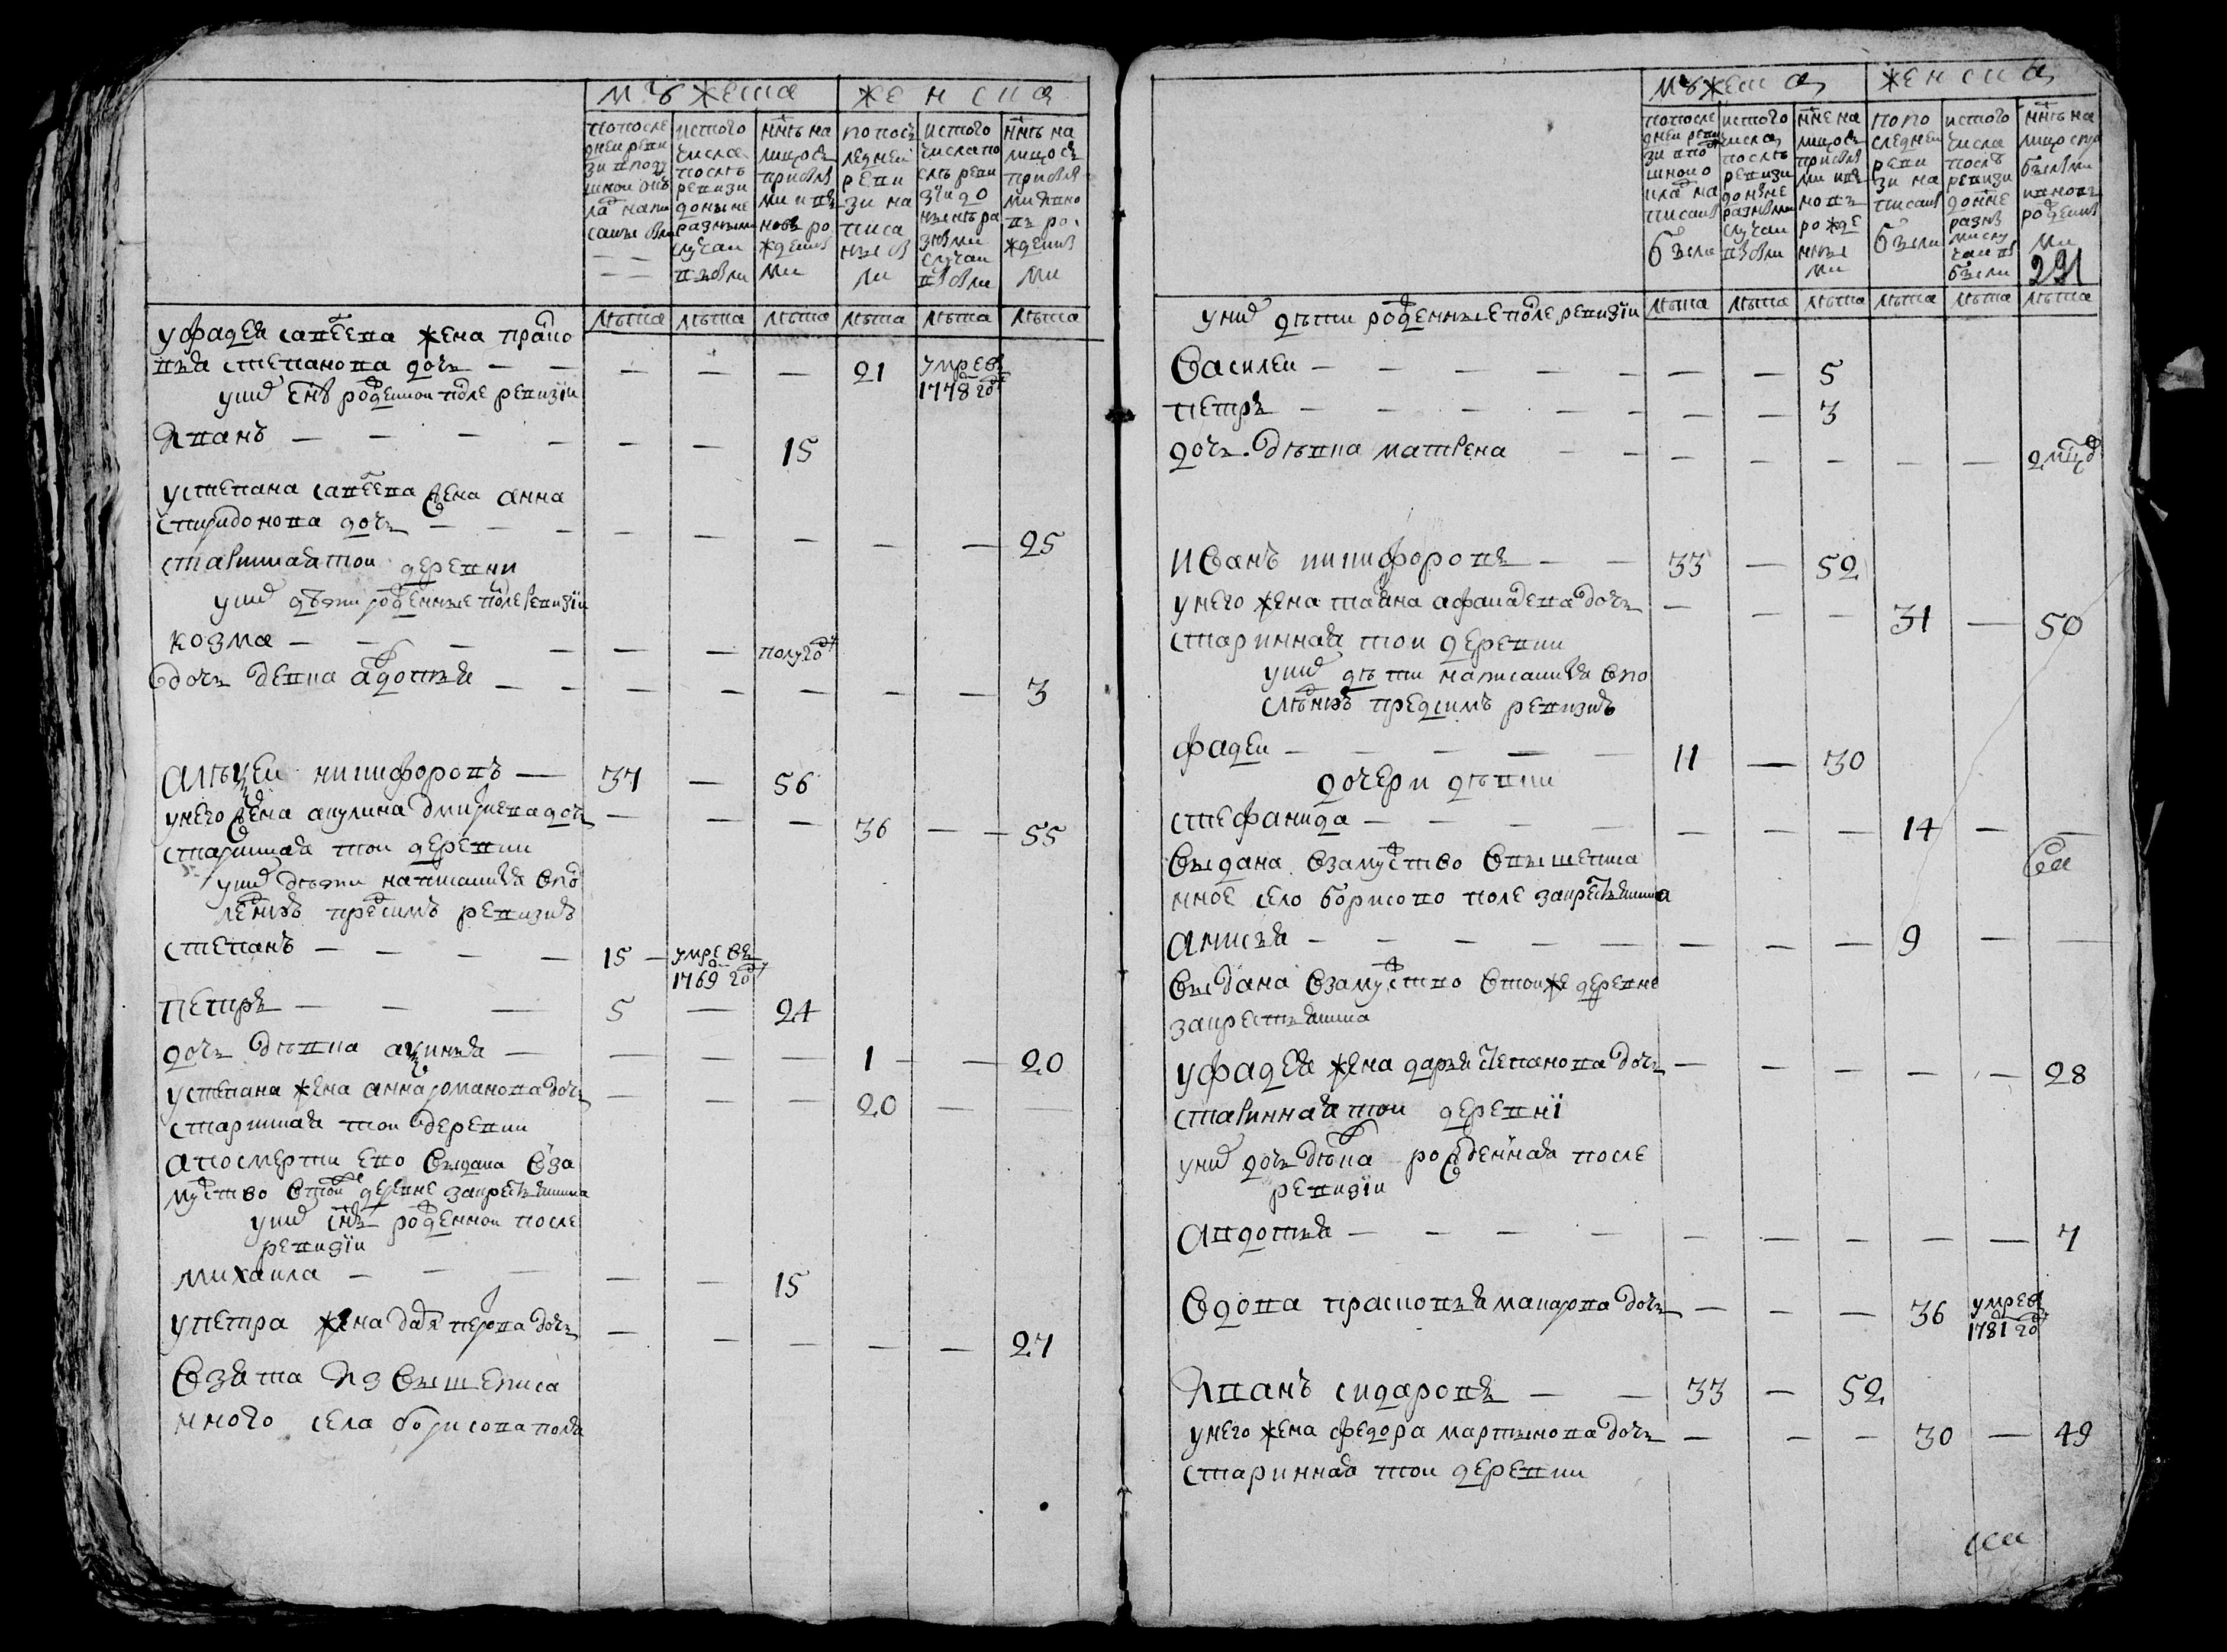 мужеска
женска
после
дней реви
зи в поду
шной окъ
ладъ напи
саны были
ис того
числа
послѣ
ревизи
до ныне
разными
случаи
выбыли
ннѣ на
лицо съ
прибылы
ми и въ
новь ро
жденны
ми
по пос
ледней
реви
зи на
писа
ны бы
ли
ис того
числа по
слѣ реви
зѣи до
ныне ра
зными
случаи
выбыли
ннѣ на
лицо съ
прибылы
ми и вно
въ ро
жденны
ми
лѣта лѣта лѣта лѣта лѣта лѣта
у фадея савеева жена праско
вья степанова дочь — — — — — 21 умре въ
1778 году
у них снъ рожденной после ревизiи
Иванъ — — — — — — 15
у степана савеева жена анна
спиридонова дочь — — — — — — — 25
старинная той деревни
у них дѣти рожденные после ревизiи
козма — — — — — — полугоду
дочь девка авдотья — — — — — — — 3
Алѣксеи никифоровъ — 37 — 56
у него жена акулина дмитрева дочь — — — 36 — — 55
старинная той деревни
у них дѣти написанныя в по
следнюю пред симъ ревизию
степанъ — — — — 15 — умре въ
1769 году
петръ — — — 5 — 24
дочь дѣвка аксинья — — — — 1 — — 20
у степана жена анна романова дочь — — — 20 — —
старинная той деревни
а по смерти ево выдана в за
мужство в той же деревне за крестьянина
у них снъ рожденной после
ревизiи
михаила — — — — — 15
у петра жена дарья петрова дочь — — — — — 27
взята из вышеписа
нного села борисова поля
мужеска
женска
по после
дней реви
зи в по
душной о
кладъ на
писаны
были
ис того
числа
послѣ
ревизи
до ныне
разными
случаи
выбыли
нне на
лицо съ
прибылы
ми и въ
новь
рожде
нны
ми
по по
следней
реви
зи на
писаны
были
ис того
числа
послѣ
ревизи
до нне
разны
ми слу
чаи вы
были
ннѣ на
лицо с при
былыми
и вновь
рожденны
ми
291
лѣта лѣта лѣта лѣта лѣта лѣта
у них дѣти рожденные после ревизiи
Василеи — — — — — — — 5
петръ — — — — — — — 3
дочь дѣвка матрена — — — — — — — — 2 мсца
Иванъ никифоровъ — — 33 — 52
у него жена татьяна афанасева дочь — — — 31 — 50
старинная той деревни
у них дѣти написанныя в по
слѣднюю пред симъ ревизию
фадеи — — — — — 11 — 30
дочери дѣвки
стефанида — — — — — — — 14 — —
выдана в замужство в вышеписа
нное село борисово поле за крестьянина
Анисья — — — — — — — — 9 — —
выдана в замужство в той же деревне
за крестьянина
у фадея жена дарья степанова дочь — — — — — 28
старинная той деревнi
у них дочь дѣвка рожденная после
ревизiи
Авдотья — — — — — — — — — 7
Вдова прасковья макарова дочь — — — 36 умре въ
1781 году
Иванъ сидоровъ — — 33 — 52
у него жена федора мартынова дочь — — — 30 — 49
старинная той деревни